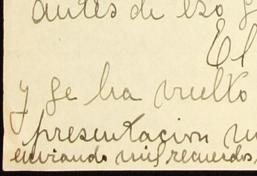 antes de eso
El
y se ha vuelto
presentacion
enviando mil recuerdos.